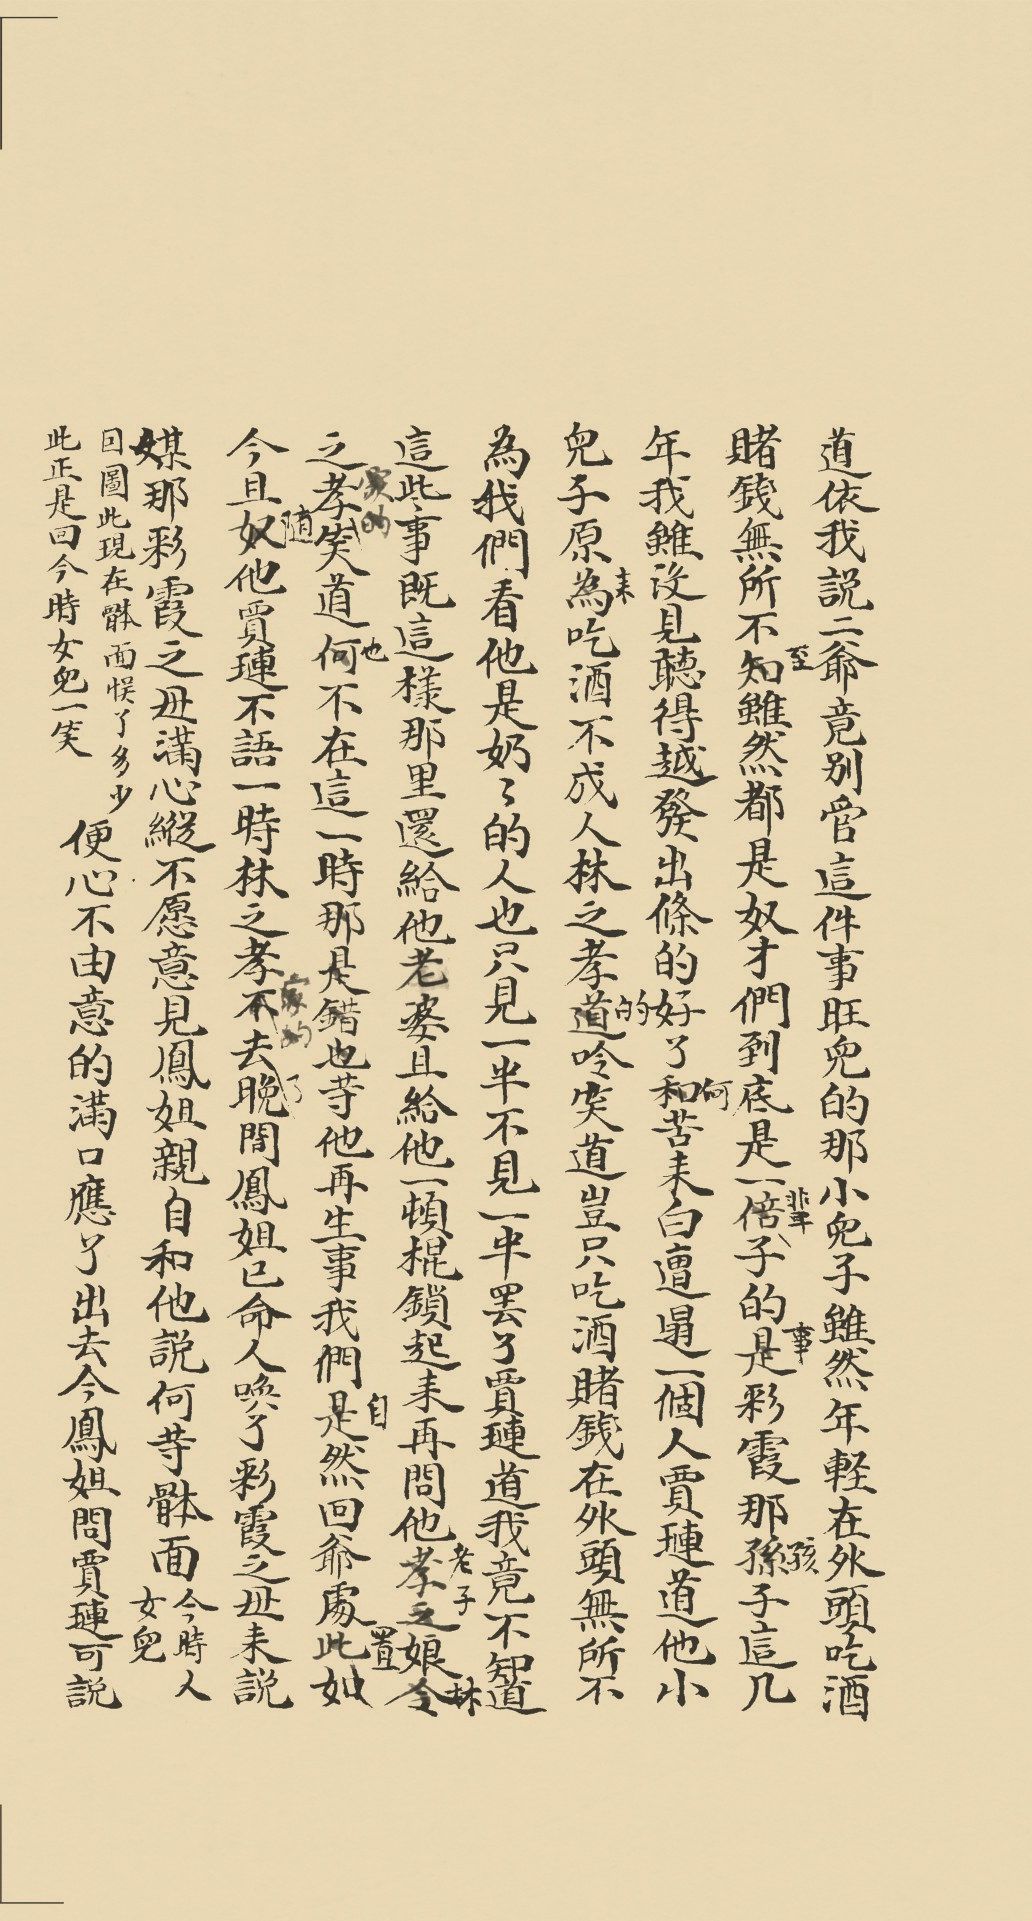 道依我説二爺竟别管這件事旺兒的那小兒子雖然年輕在外頭吃酒
賭錢無所不至知雖然都是奴才們到底是一倍輩子的事是彩霞那孫孩子這几
年我雖沒見聽得越發出條的好了和何苦来白遭塌一個人賈璉道他小
兒子原来為吃酒不成人林之孝的道吟笑道豈只吃酒賭錢在外頭無所不
為我們看他是奶〻的人也只見一半不見一半罢了賈璉道我竟不知道
這些事既這樣那里還給他老婆且給他一頓棍鎖起来再問他老子孝之娘林令
之孝家的笑道何也不在這一時那是錯也等他再生事我們自是然回爺處置此如
今且随奴他賈璉不語一時林之孝家的不去了晚間鳳姐已命人喚了彩霞之母来説
媒那彩霞之母滿心縱不愿意見鳳姐親自和他説何等體面
今時人
女兒
因圖此現在體面悮了多少
此正是回今時女兒一笑
便心不由意的滿口應了出去今鳳姐問賈璉可説